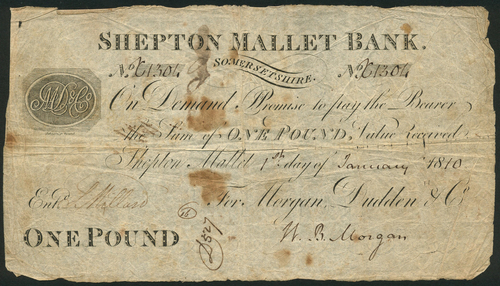 SHEPTON MALLET BANK.
SOMERSETSHIRE.
No X1304 No X1304
On Demand Promise to pay the Bearer
the Sum of ONE POUND, Value Received
Shepton Mallet 1st day of January 1810
For Morgan, Dudden & Co
Entd
ONE POUND
W. B. Morgan